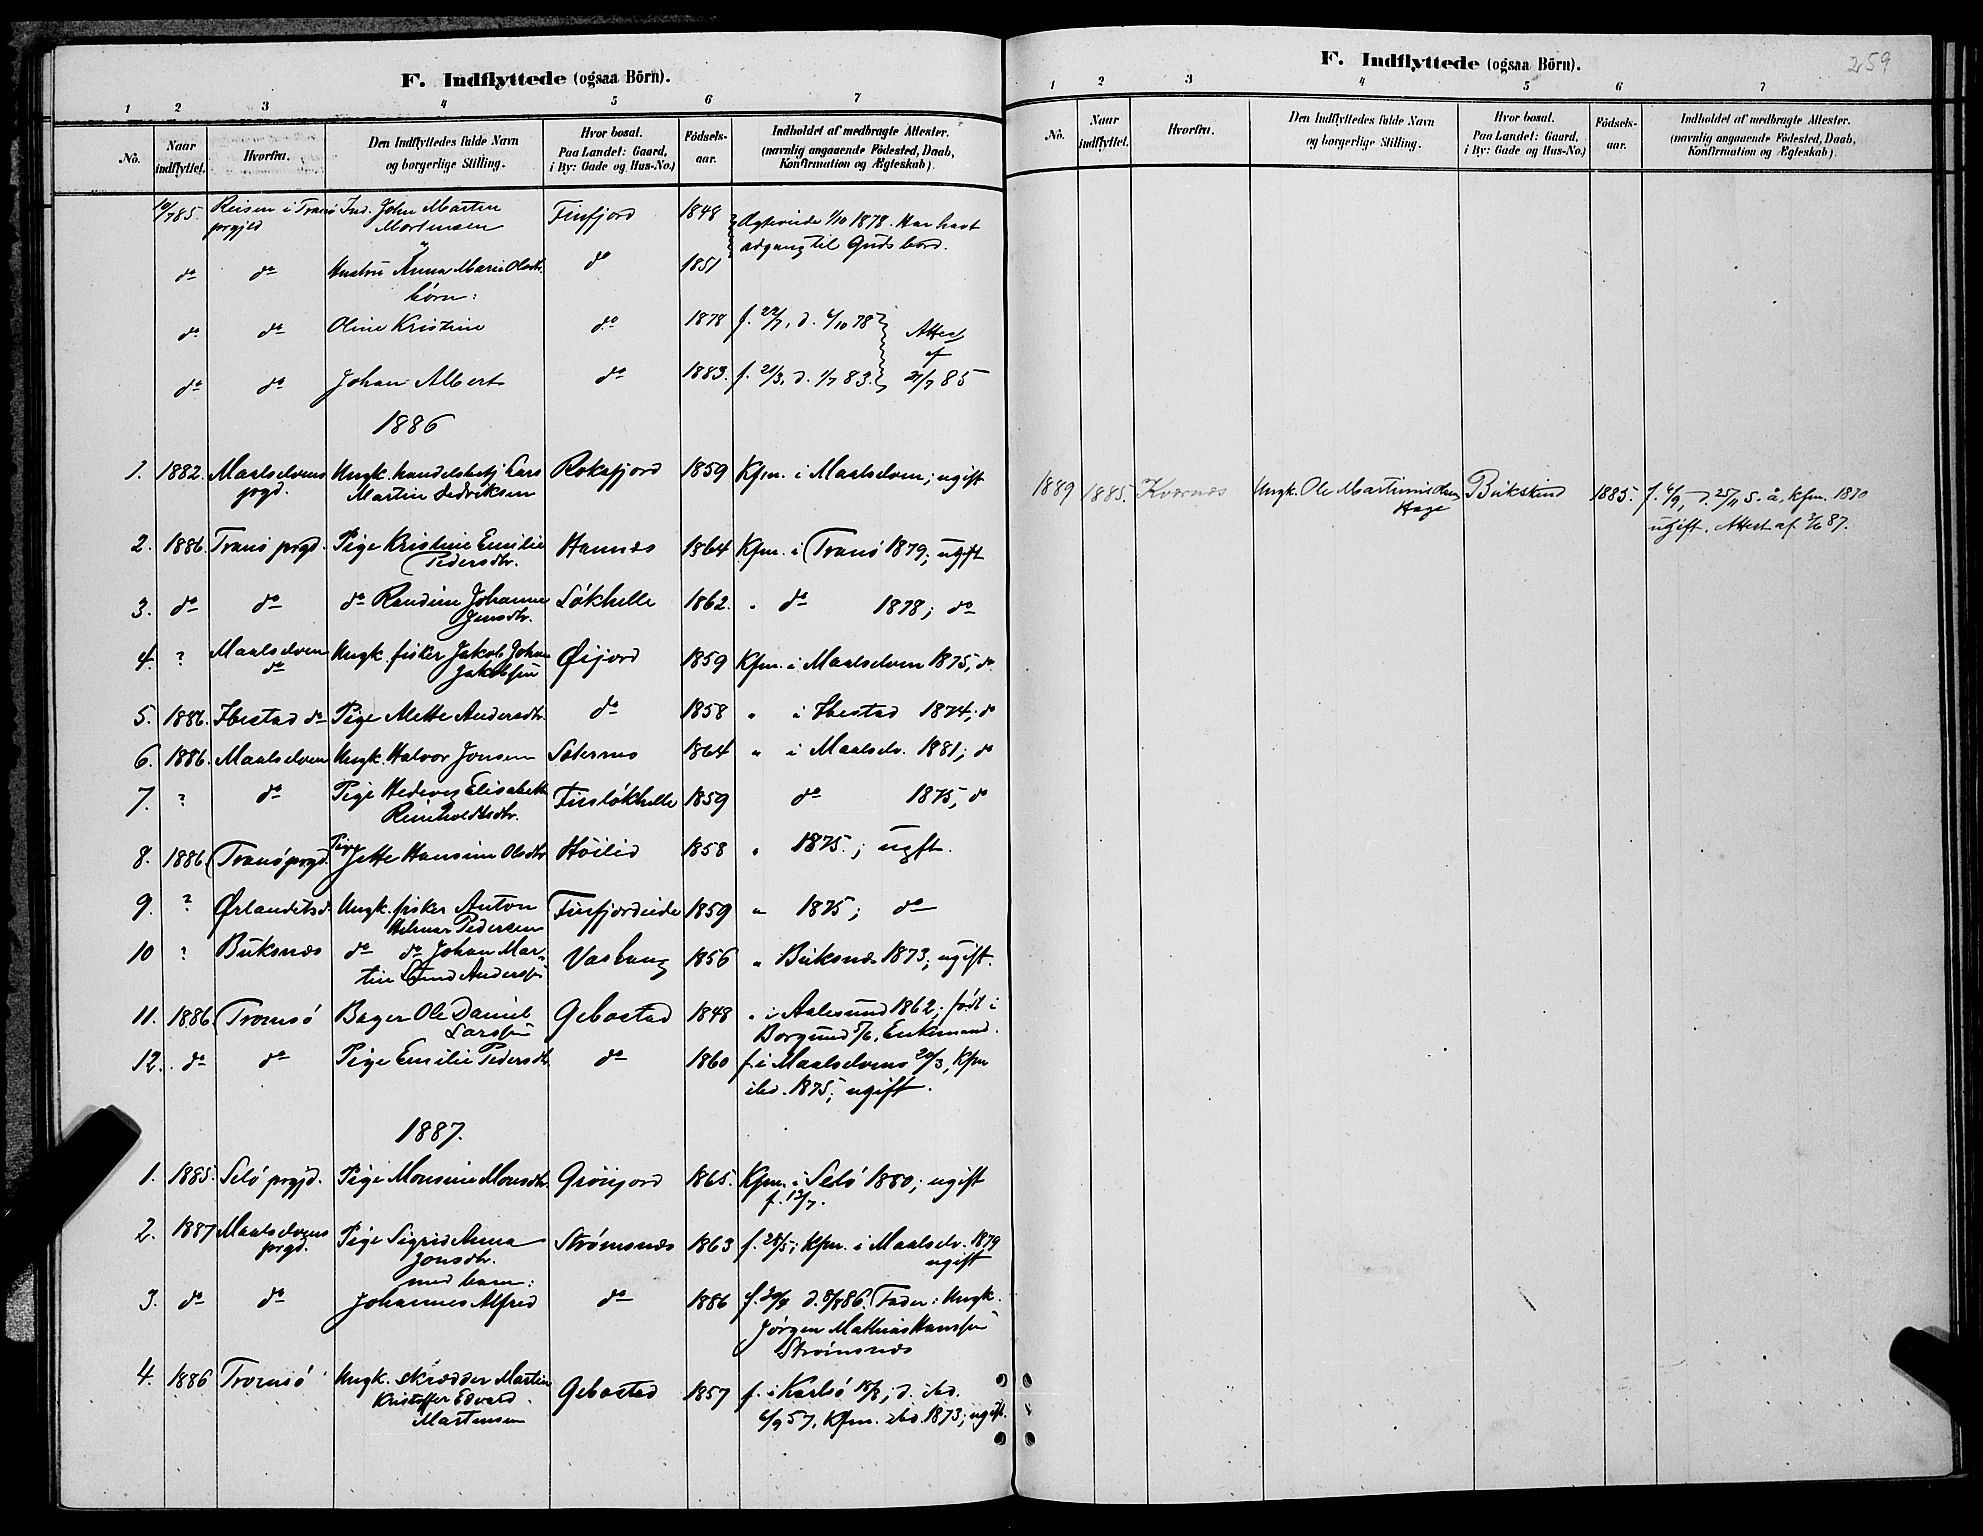 F. Indflyttede (ogsaa Börn).
1 2 3 4 5 6 7
No. Naar indflyttet. Hvorfra. Den Indflyttedes fulde Navn og borgerlige Stilling. Hvor bosat. Paa Landet: Gaard, i By: Gade og Hus-No.) Födsels-aar. Indholdet af medbragte Attester. (navnlig angaaende Födested, Daab, Konfirmation og Ægteskab).
10/7 85. Reisen i Tranö Ind. John Martin Finfjord 1848 Ægteviede 1/10 1878. Har havt
prgjld Mortensen adgang til Guds bord.
do do Hustru Anna Marie Olsdtr. do 1851
börn:
do do Oline Kristine do 1878 f. 22/7, d. 6/10 78 Attest
af
do do Johan Albert do 1883. f. 21/3, d. 1/7 83. 21/7 85
1886
1. 1882. Maalselvens Ungk. handelsbetj. Lars Roksfjord 1859 Kfm. i Maalselven; ugift
prgd. Martin Fedriksen
2. 1886. Tranö prgd. Pige Kristine Emilie Hannæs 1864 Kfm. i Tranö 1879; ugift
Pedersdtr.
3. do do do Randine Johanne Løkhelle 1862. " do 1878; do
Jensdtr.
4. ? Maalselven Ungk. fisker Jakob Johan Øijord 1859 Kfm. i Maalselven 1875; do
do Jakobsen
5. 1886. Ibestad do Pige Mette Andersdtr. do 1858 " i Ibestad 1874; do
6. 1886. Maalselven Ungk. Halvor Jonsen 1864 " i Maalselv. 1881; do
7. ? do Pige Hedevig Elisabeth Finsløkhelle 1859 do 1875; do
Reinholdtsdtr.
8. 1886 Tranö prgd. Pige Jette Hansine Olsdtr. Høilid 1858 " 1875.; ugft.
9. ? Ørlandets d. Ungk. fisker Anton Finfjordeide 1859 " 1875; do
Hilmar Pedersen
10 ? Buksnæs do do Johan Mar- Vashaug 1856 " Buksnæs 1873; ugift.
tin Lund Anderssen
11. 1886. Tromsö Bager Ole Daniel Gebostad 1848 " i Aalesund 1862; født i
Larssen Borgund 5/6, Enkemand.
12. do do Pige Emilie Pedersdtr. do 1860 f. i Maalselvens 20/3, Kfm
ibd. 1875; ugift.
1887.
1. 1885. Selö prgjd. Pige Monsine Monsdtr. Grönjord 1865. Kfm. i Selö 1880; ugift
f. 13/7.
2. 1887 Maalselvens Pige Sigrid Anna Strömsnæs 1863 f. 28/5; Kfm. i Maalselv. 1879
prgd. Jonsdtr. ugift
med barn:
3. do do Johannes Alfred do 1886 f. 20/4 d. 8/8 86. Fader: Ungk.
Jörgen Mathias Hanssen
Strömsnæs
4. 1886 Tromsö Ungk. skrædder Martin Gebostad 1857 f. i Karlsö 18/8; d. ibd.
Kristoffer Edvard 6/9 57, Kfm. ibd. 1873; ugift.
Martensen
F. Indflyttede (ogsaa Börn). 259
1 2 3 4 5 6 7
No. Naar indflyttet. Hvorfra. Den Indflyttedes fulde Navn og borgerlige Stilling. Hvor bosat. Paa Landet: Gaard, i By: Gade og Hus-No.) Födsels-aar. Indholdet af medbragte Attester. (navnlig angaaende Födested, Daab, Konfirmation og Ægteskab).
1889 1885. Kværnæs Ungk. Ole Martinus Olsen Bukskind 1885. f. 6/9, d. 25/11 s. å, Kfm. 1870
Hage ugift. Attest af 3/6 87.